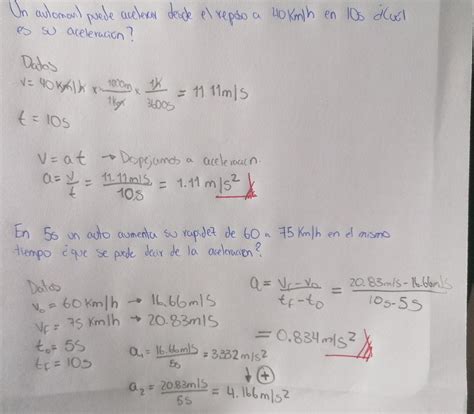 Un automovil puede acelerar desde el reposo a 40 Km/h en 10s ¿Cuál
es su aceleracion?
Datos
v = 40 Km/h × 1000m/1Km × 1h/3600s = 11.11m/s
t = 10s
v = at → Despejamos a aceleracion
a = v/t = 11.11m/s/10s = 1.11 m/s²
En 5s un auto aumenta su rapidez de 60 a 75 Km/h en el mismo
tiempo ¿que se puede decir de la aceleracion?
Datos
v₀ = 60 Km/h → 16.66m/s
vf = 75 Km/h → 20.83m/s
t₀ = 5s
tf = 10s
a₁ = 16.66m/s/5s = 3.332 m/s²
↓ +
a₂ = 20.83m/s/5s = 4.166 m/s²
a = vf - v₀/tf - t₀ = 20.83m/s - 16.66m/s/10s - 5s
= 0.834 m/s²